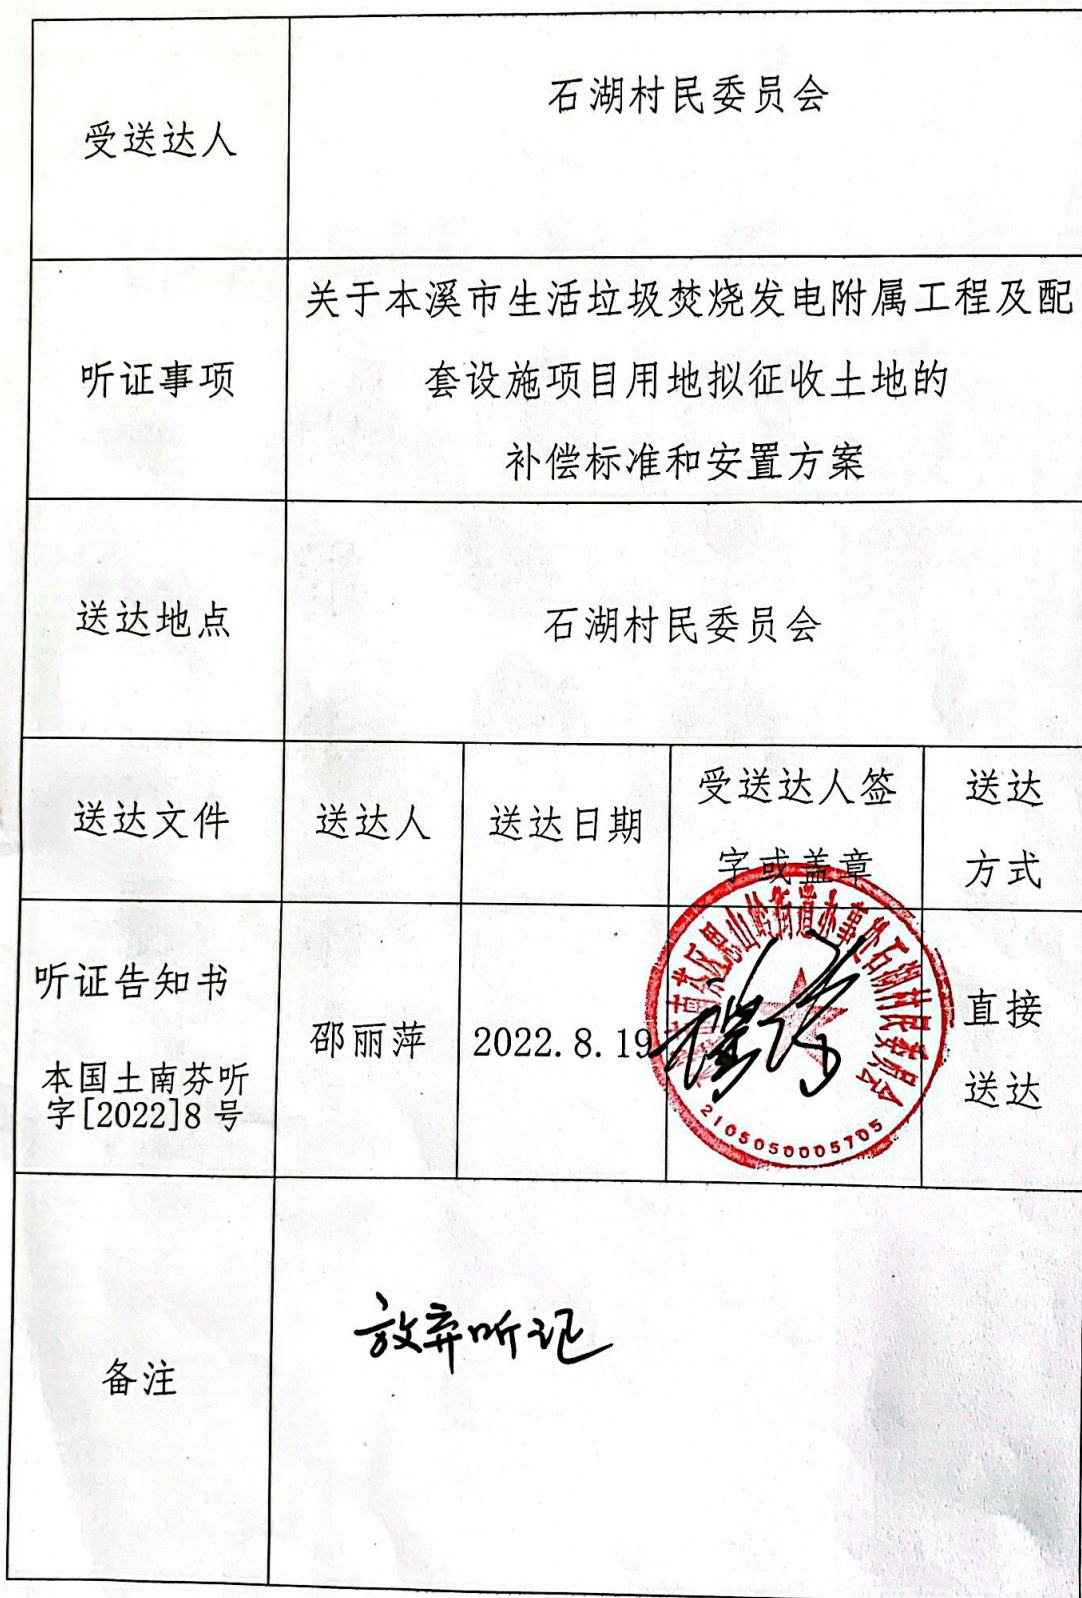 受送达人
石湖村民委员会
听证事项
关于本溪市生活垃圾焚烧发电附属工程及配
套设施项目用地拟征收土地的
补偿标准和安置方案
送达地点
石湖村民委员会
送达文件
送达人
送达日期
受送达人签
字或盖章
送达
方式
听证告知书
本国土南芬听
字[2022]8号
邵丽萍
2022.8.19
区思山岭街道办事处石湖村民委员会
2105050005705
直接
送达
备注
放弃听证